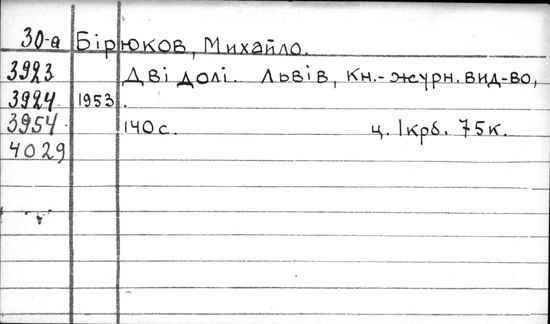 30-а Бірюков, Михайло.
3923 Дві долі. Львів, Кн.-журн. вид-во,
3924 1953.
3954 140 с. ц. 1крб. 75к.
4029